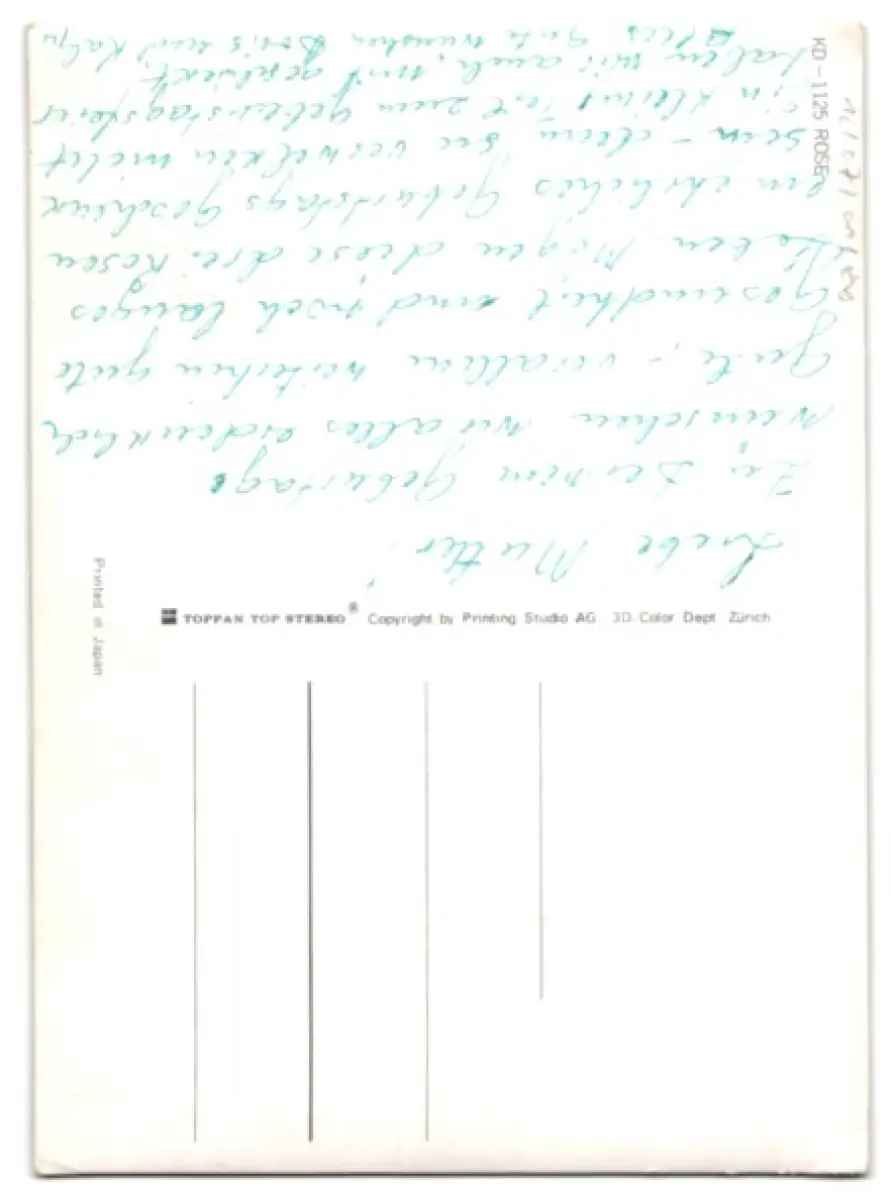 Liebe Mutter!
Zu Deinem Geburtstage
wünschen wir alles erdenklich
Gute, – vorallem weiterhin gute
Gesundheit und noch langes
Leben Mögen diese drei Rosen
ein ehrliches Geburtstags Geschenk
sein – denn sie verwelken nicht
Ein kleines zum Geburtstagsfeier
haben wir auch mit geschickt
Alles Gute wünschen Doris und
TOPPAN TOP STEREO® Copyright by Printing Studio AG 3D-Color Dept. Zürich
Printed in Japan
KD-1125 ROSE